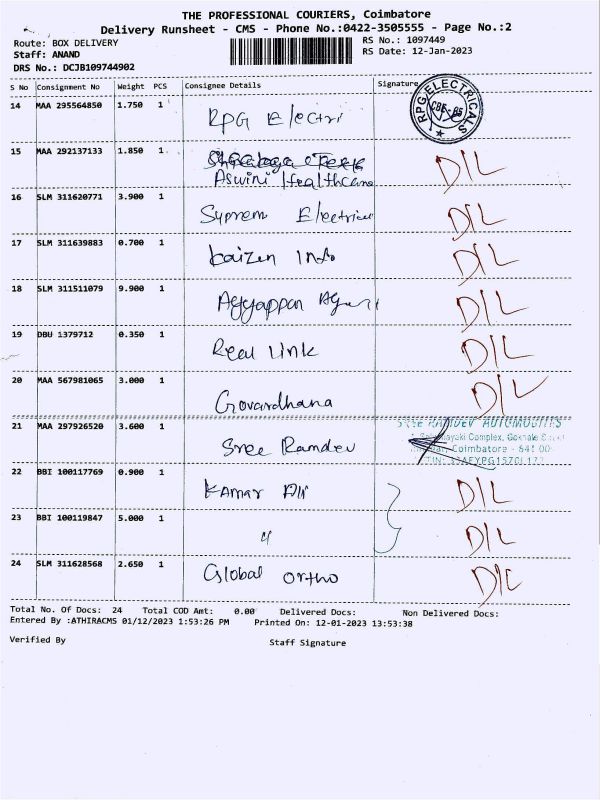 THE PROFESSIONAL COURIERS, Coimbatore
Delivery Runsheet - CMS - Phone No.:0422-3505555 - Page No.:2
Route: BOX DELIVERY RS No.: 1097449
Staff: ANAND RS Date: 12-Jan-2023
DRS No.: DCJB109744902
S No Consignment No Weight PCS Consignee Details Signature
14 MAA 295564850 1.750 1 RPG Electri RPG ELECTRICALS CBE
15 MAA 292137133 1.850 1
Aswini Healthcare D/L
16 SLM 311620771 3.900 1 Suprem Electrical D/L
17 SLM 311639883 0.700 1 Kaizen Info D/L
18 SLM 311511079 9.900 1 Ayyappan D/L
19 DBU 1379712 0.350 1 Real Link D/L
20 MAA 567981065 3.000 1 Govardhana D/L
21 MAA 297926520 3.600 1 Sree Ramdev SREE RAMDEV AUTOMOBILES
Complex, Gokhale
Coimbatore - 641 00
22 BBI 100117769 0.900 1 Kamar D/L
23 BBI 100119847 5.000 1 " D/L
24 SLM 311628568 2.650 1 Global Ortho D/L
Total No. Of Docs: 24 Total COD Amt: 0.00 Delivered Docs: Non Delivered Docs:
Entered By :ATHIRACMS 01/12/2023 1:53:26 PM Printed On: 12-01-2023 13:53:38
Verified By Staff Signature